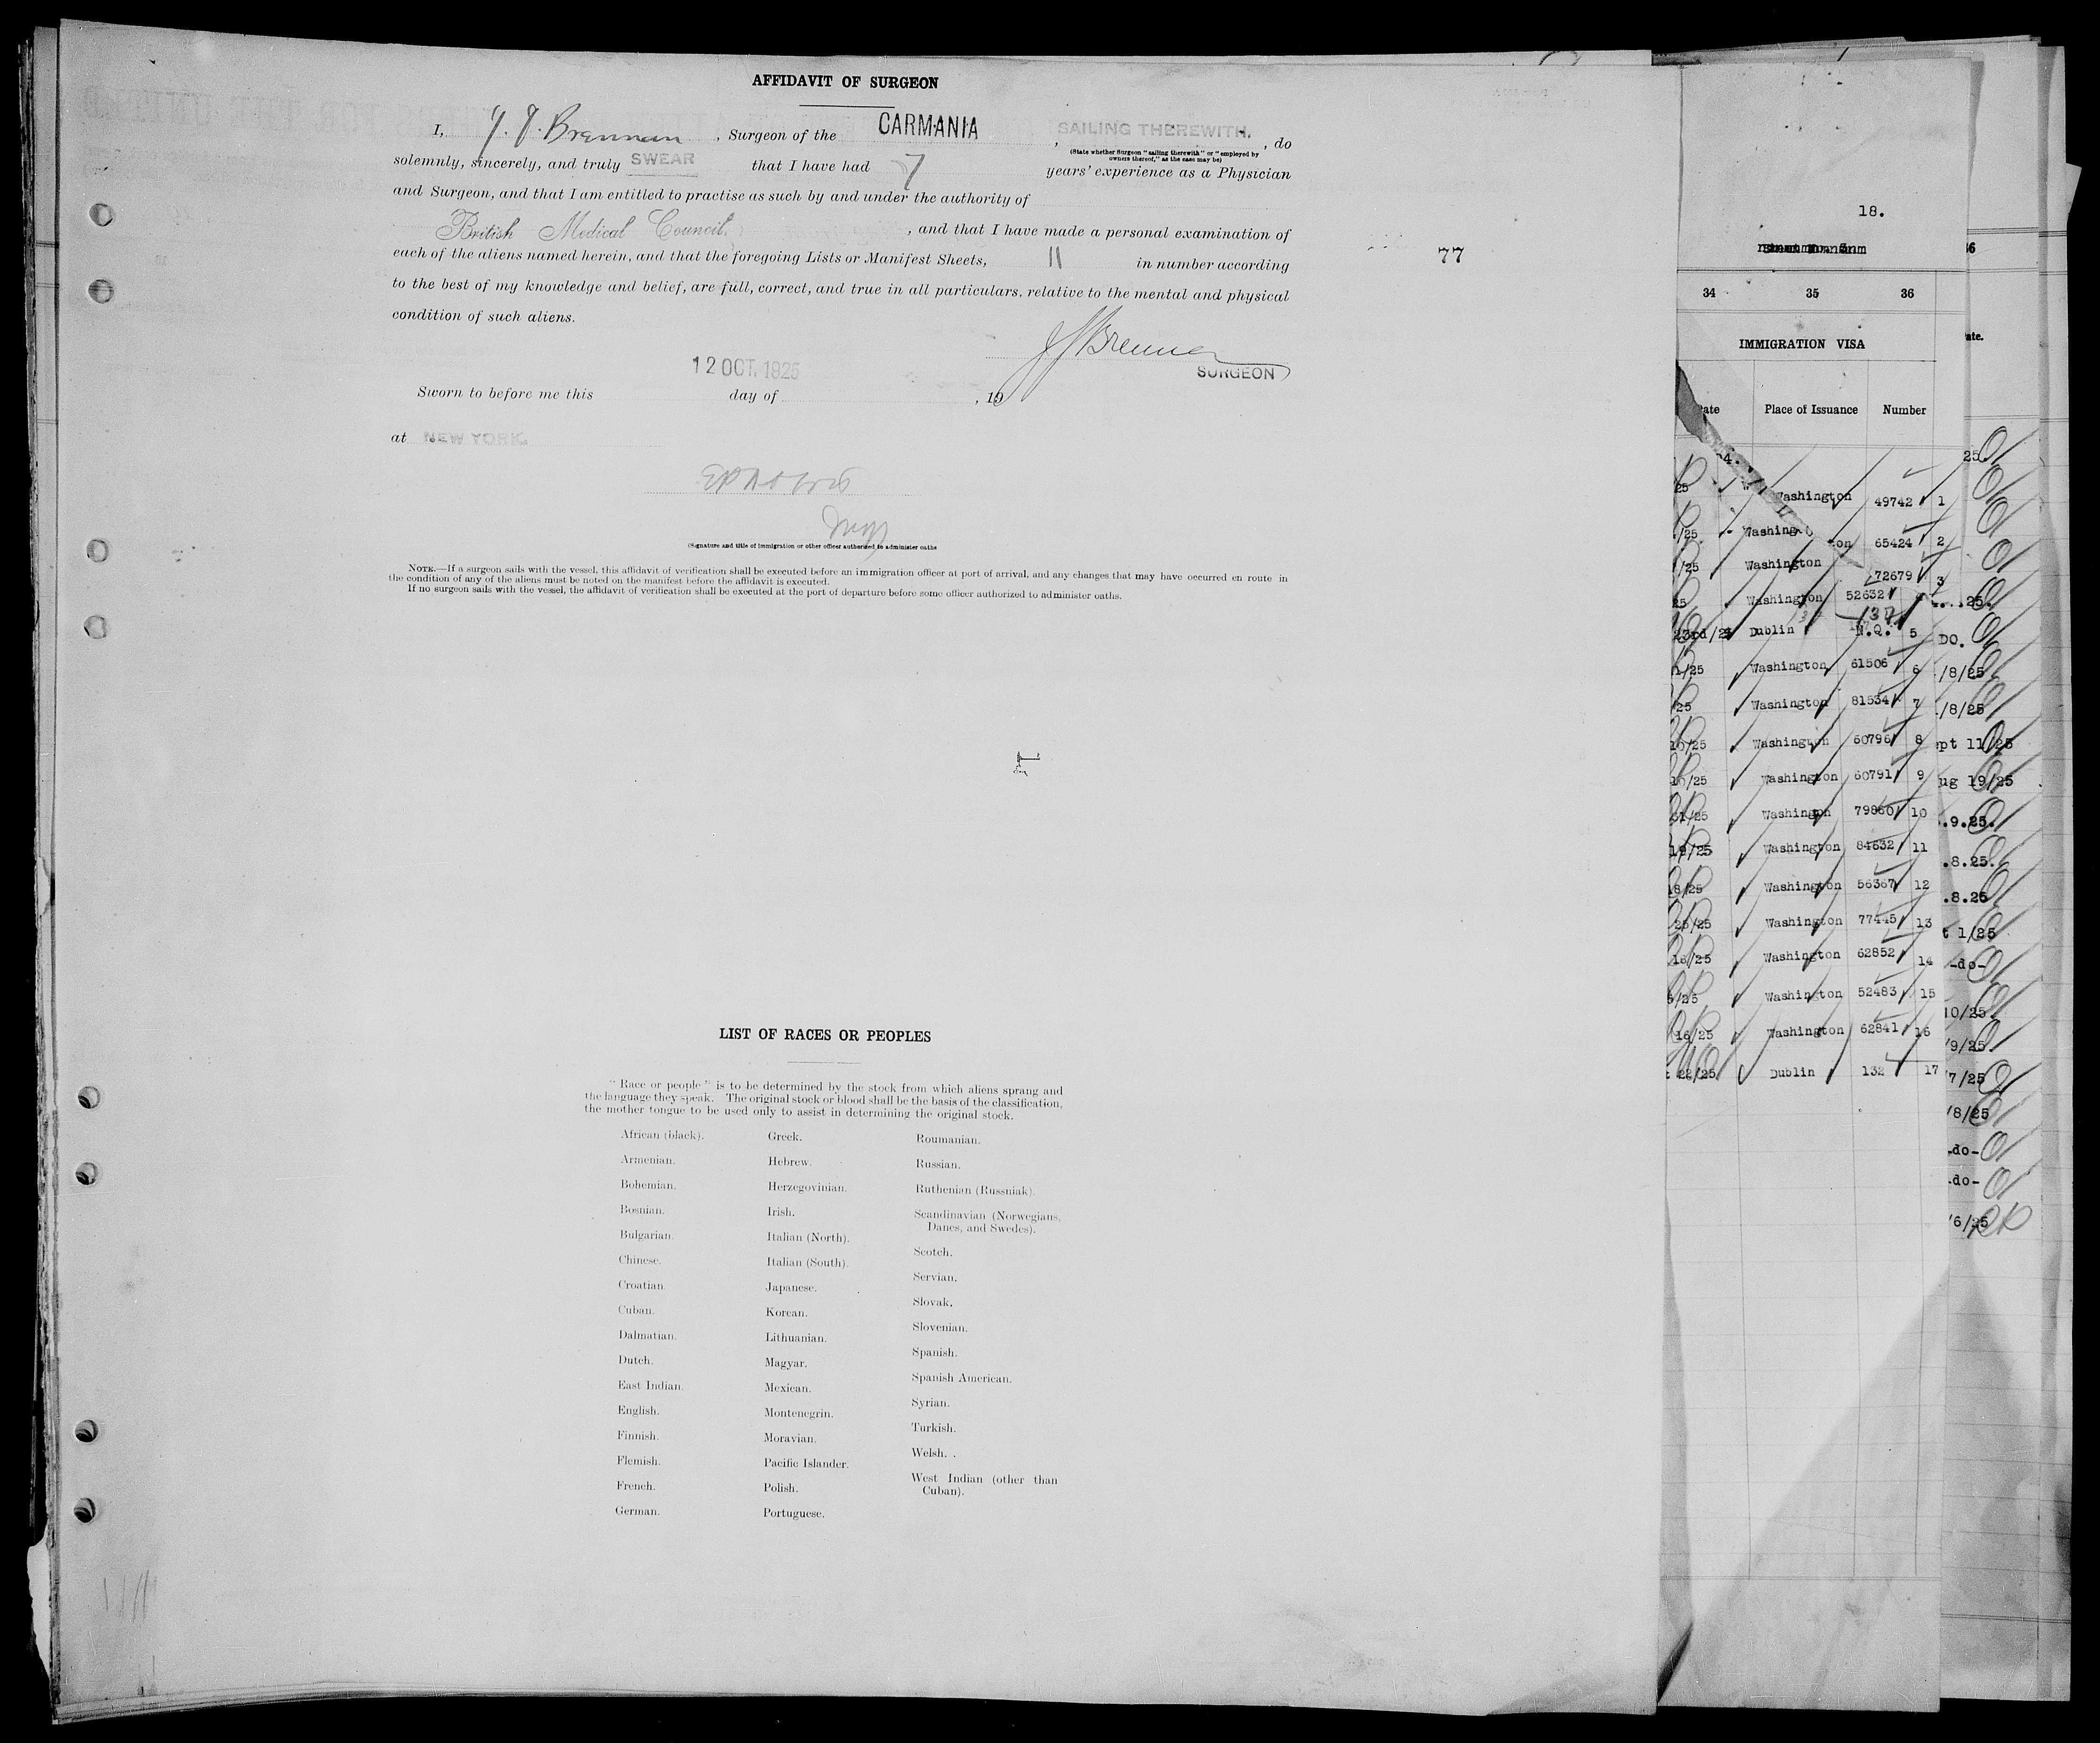 AFFIDAVIT OF SURGEON
I, J. J. Brennan, Surgeon of the CARMANIA, SAILING THEREWITH, do
(State whether Surgeon "sailing therewith" or "employed by
owners thereof," as the case may be)
solemnly, sincerely, and truly SWEAR that I have had 7 years' experience as a Physician
and Surgeon, and that I am entitled to practise as such by and under the authority of
British Medical Council, and that I have made a personal examination of
each of the aliens named herein, and that the foregoing Lists or Manifest Sheets, 11 in number according
to the best of my knowledge and belief, are full, correct, and true in all particulars, relative to the mental and physical
condition of such aliens.
77
J J Brennan
SURGEON
12 OCT. 1925
Sworn to before me this day of , 19
at NEW YORK.
(Signature and title of immigration or other officer authorized to administer oaths
NOTE.—If a surgeon sails with the vessel, this affidavit of verification shall be executed before an immigration officer at port of arrival, and any changes that may have occurred en route in
the condition of any of the aliens must be noted on the manifest before the affidavit is executed.
If no surgeon sails with the vessel, the affidavit of verification shall be executed at the port of departure before some officer authorized to administer oaths.
LIST OF RACES OR PEOPLES
"Race or people" is to be determined by the stock from which aliens sprang and
the language they speak. The original stock or blood shall be the basis of the classification,
the mother tongue to be used only to assist in determining the original stock.
African (black).
Armenian.
Bohemian.
Bosnian.
Bulgarian.
Chinese.
Croatian.
Cuban.
Dalmatian.
Dutch.
East Indian.
English.
Finnish.
Flemish.
French.
German.
Greek.
Hebrew.
Herzegovinian.
Irish.
Italian (North).
Italian (South).
Japanese.
Korean.
Lithuanian.
Magyar.
Mexican.
Montenegrin.
Moravian.
Pacific Islander.
Polish.
Portuguese.
Roumanian.
Russian.
Ruthenian (Russniak).
Scandinavian (Norwegians,
Danes, and Swedes).
Scotch.
Servian.
Slovak.
Slovenian.
Spanish.
Spanish American.
Syrian.
Turkish.
Welsh.
West Indian (other than
Cuban).
18.
34 35 36
IMMIGRATION VISA
Place of Issuance Number
Washington 49742 1
Washington 65424 2
Washington 72679 3
Washington 52632
23rd/2 Dublin N.Q. 5
/25 Washington 61506 6
/25 Washington 81534 7
10/25 Washington 60796 8
10/25 Washington 60791 9
21/25 Washington 79860 10
19/25 Washington 84632 11
18/25 Washington 56367 12
25/25 Washington 77445 13
16/25 Washington 62852 14
/25 Washington 52483 15
16/25 Washington 62841 16
22/25 Dublin 132 17
36
ate.
25.
25.
DO.
/8/25
/8/25
ept 11/25
ug 19/25
.9.25.
.8.25.
.8.25
t 1/25
-do-
10/25.
/9/25.
/7/25
/8/25
-do-
-do-
/6/25